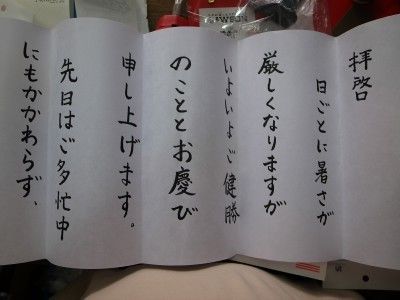 拝啓
日ごとに暑さが
厳しくなりますが
いよいよご健勝
のこととお慶び
申し上げます。
先日はご多忙中
にもかかわらず、
LAWSON